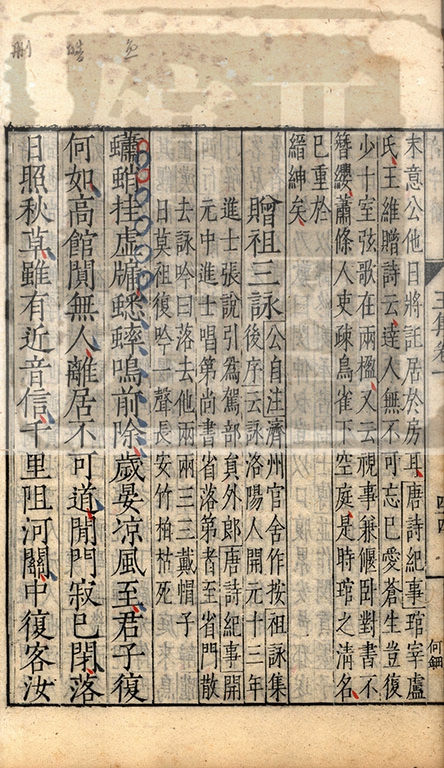 末意公他日將託居於房耳唐詩紀事琯宰盧
氏王維贈詩云達人無不可忘已愛蒼生豈復
少十室弦歌在兩楹又云視事兼偃卧對書不
簪纓蕭條人吏疎鳥雀下空庭是時琯之清名
已重於
縉紳矣
贈祖三詠
公自注濟州官舍作按祖詠集
後序云詠洛陽人開元十三年
進士張說引爲駕部員外郎唐詩紀事開
元中進士唱第尚書省落第者至省門散
去詠吟曰落去他兩兩三三戴帽子
日莫祖復吟一聲長安竹柏枯死
蠨蛸挂虛牖蟋蟀鳴前除歲晏凉風至君子復
何如高館闃無人離居不可道閒門寂已閉落
日照秋草雖有近音信千里阻河關中復客汝
何鋼